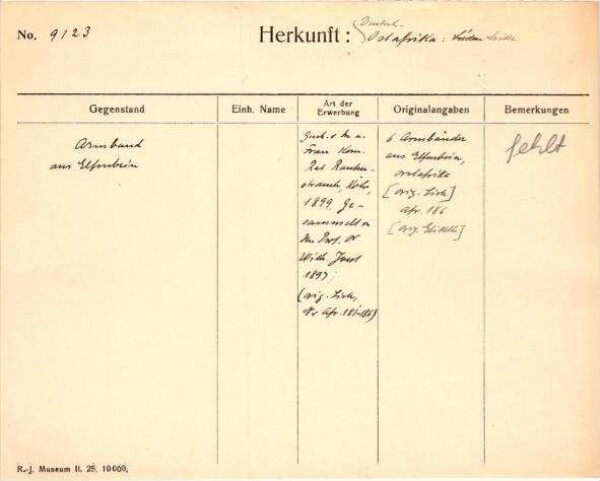 No. 9123
Herkunft: Deutsch-
Ostafrika: Süden
Gegenstand
Einh. Name
Art der
Erwerbung
Originalangaben
Bemerkungen
Armband
aus Elfenbein
Gesch. v.
Frau Kom.
Rat Rauten-
strauch, Köln,
1899. Ge-
sammelt v.
Prof. Dr
Wilh. Joest
1897;
(orig. Liste,
Nr Afr.
6 Armbänder
aus Elfenbein,
Ostafrika
[orig. Liste]
Afr. 186
[orig. Etikette]
fehlt
R.-J. Museum II. 25. 10000.